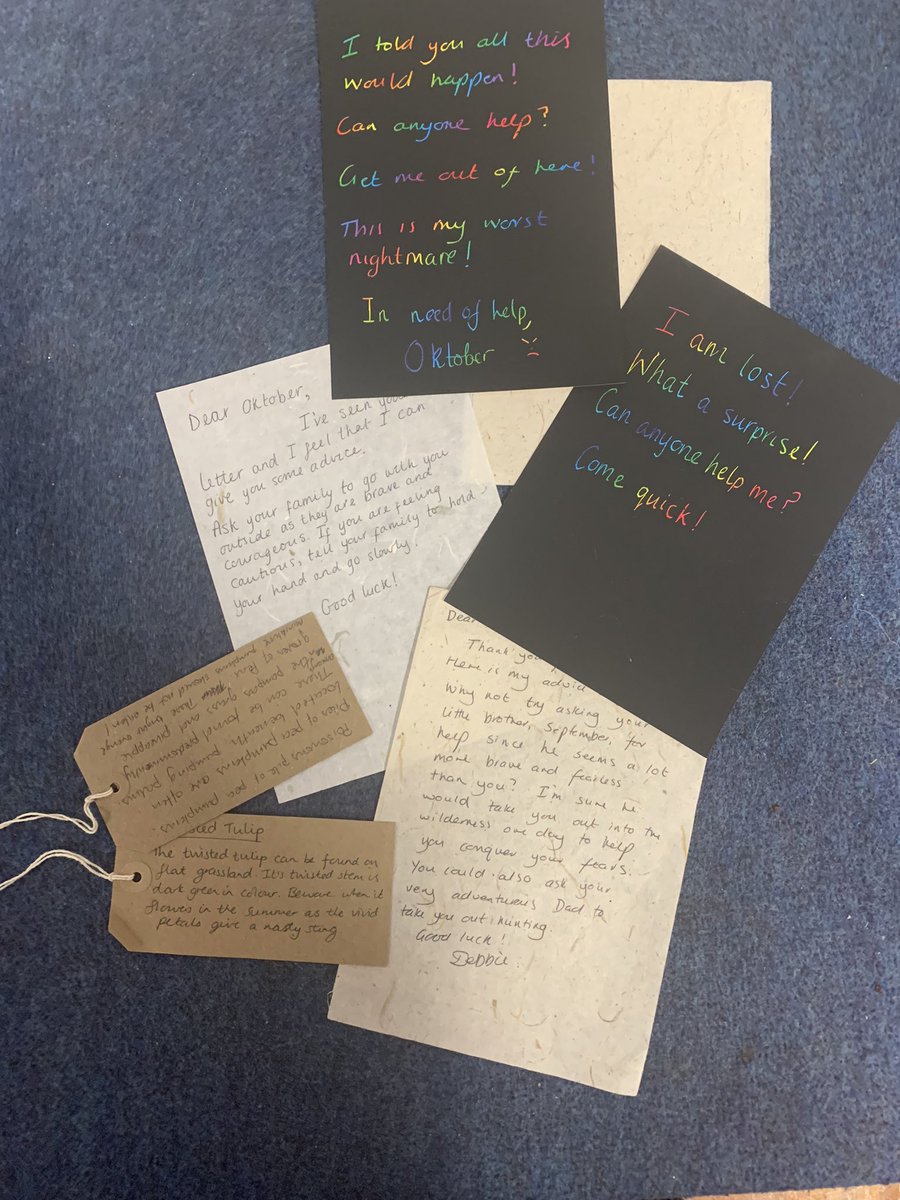 I told you all this
would happen!
Can anyone help?
Get me out of here!
This is my worst
nightmare!
In need of help,
Oktober
I am lost!
What a surprise!
Can anyone help me?
Come quick!
Dear Oktober,
I've seen you
letter and I feel that I can
give you some advice.
Ask your family to go with you
outside as they are brave and
courageous. If you are feeling
cautious, tell your family to hold
your hand and go slowly!
Good luck!
Dear
Thank you
Here is my advic
Why not try asking your
little brother, September, for
help since he seems a lot
more brave and fearless
than you? I'm sure he
would take you out into the
wilderness one day to help
you conquer your fears.
You could also ask your
very adventurous Dad to
take you out hunting.
Good luck!
Debbie.
Poisonous pile of pea pumpkins.
Piles of pea pumpkins are often
located beneath pumping
There can be found predominently
grass and pineapple
pumpkins should not be eaten!
sted Tulip
The twisted tulip can be found on
flat grassland. It's twisted stem is
dark green in colour. Beware when it
flowers in the summer as the vivid
petals give a nasty sting